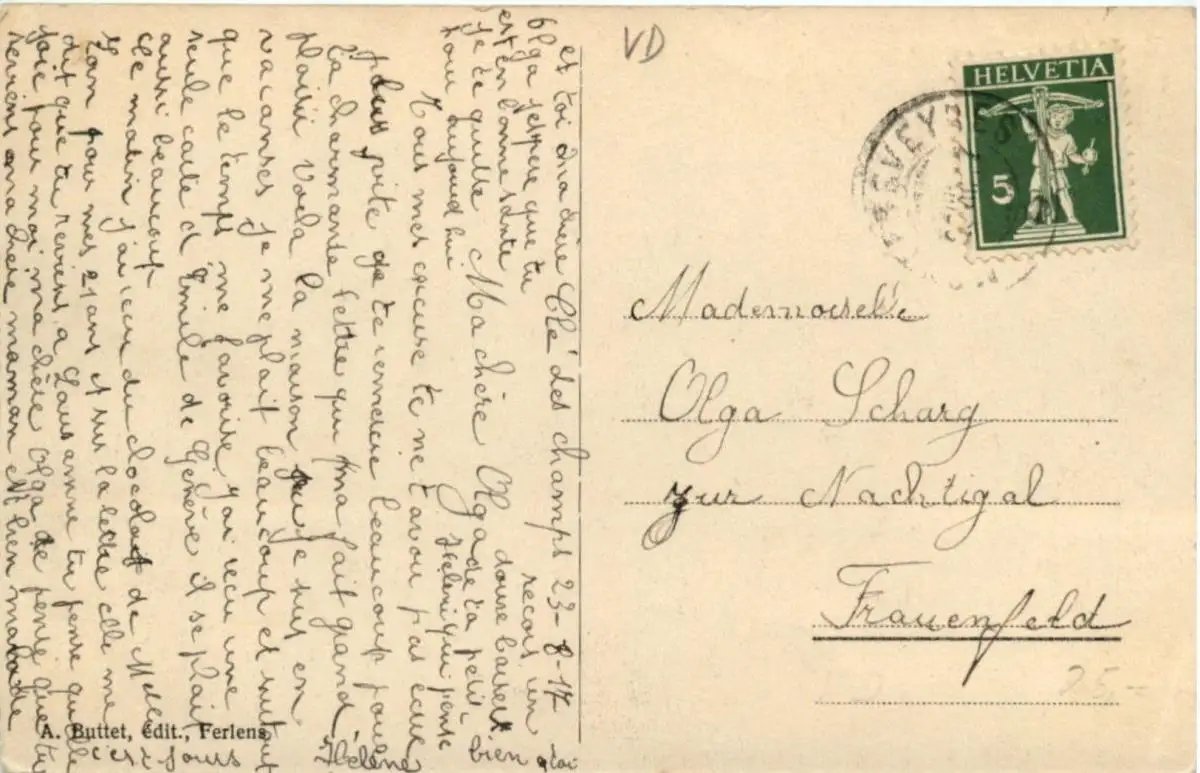 et toi ma chère Clé des champs 23-8-17
Olga j'espère que tu reçois un
est en bonne santé doux baiser
je te quitte Ma chère Olga de ta petit
pour aujourd hui Heleni qui pense bien a toi
Tous mes excuse de ne t'avoir pas
plus vite je te remercie beaucoup pour
ta charmante lettre qui ma fait grand
plaisir Voila la maison ou je suis en
Hélène
vacances je me plait beaucoup et surtout
que le temps me favorise J'ai reçu une
seule carte d Emile de Genève il se plait
aussi beaucoup
Ce matin j'ai eu du de Melle
pour mes 21 ans et sur la lettre elle me
dit que tu reviens a Lausanne tu pense quelle
joie pour moi ma chère Olga je pense que tu
reviens ma chere maman bien malade
c'est jours
A. Buttet, édit., Ferlens
VD
HELVETIA
5
VEVEY
Mademoiselle
Olga Scharg
zur Nachtigal
Frauenfeld
25.-